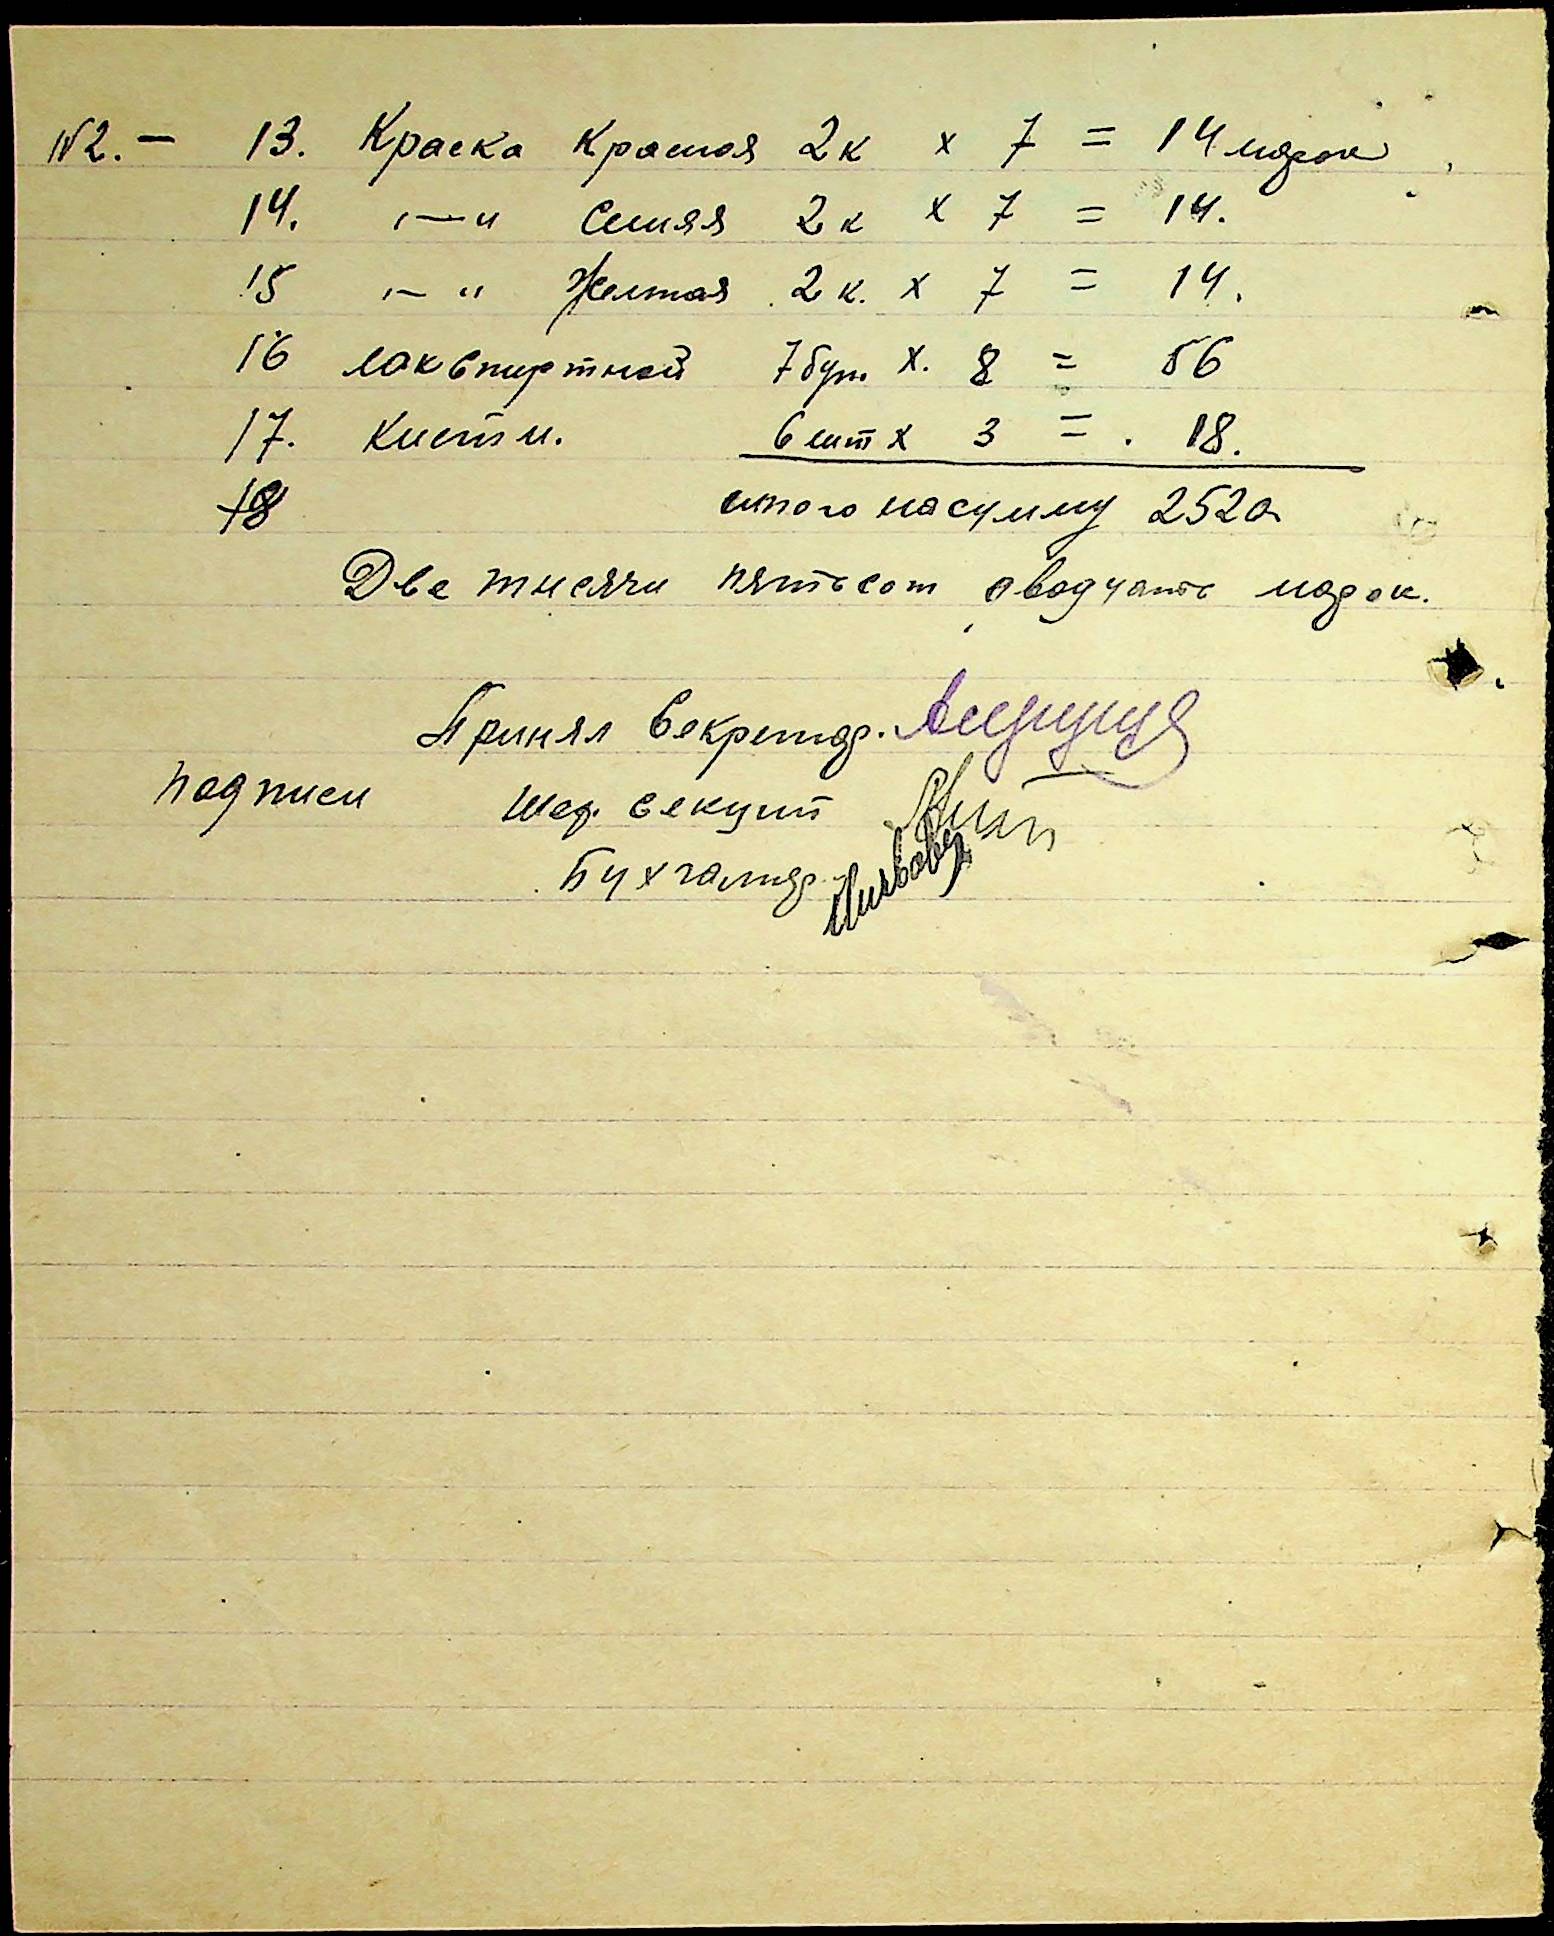 №2. — 13. Краска красная 2к х 7 = 14 марок
14. "—" синяя 2к х 7 = 14.
15 "—" Желтая 2к. х 7 = 14.
16 лак спиртной 7 бут. х. 8 = 56
17. кисти. 6 шт х 3 = 18.
18 итого на сумму 2520
Две тысячи пятьсот двадцать марок.
Принял Секретар.
подписи Шеф. секции
Бухгалтер